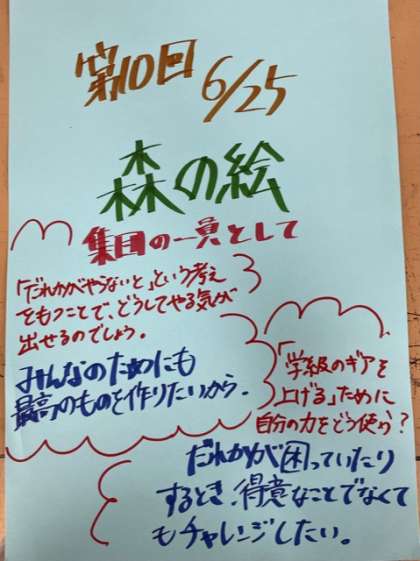 第10回
6/25
森の絵
集団の一員として
「だれかがやらないと」という考え
をもつことで、どうしてやる気が
出せるのでしょう。
みんなのためにも
最高のものを作りたいから。
「学級のギアを
上げる」ために
自分の力をどう使う?
だれかが困っていたり
するとき、得意なことでなくて
もチャレンジしたい。